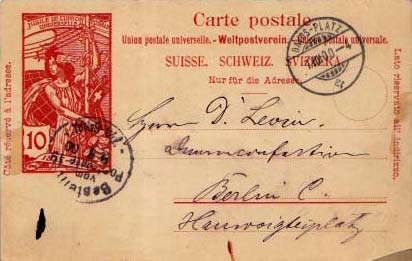 JUBILÉ DE L'UNION POSTALE UNIVERSELLE
Carte postale.
Union postale universelle. - Weltpostverein. - Unione postale universale.
SUISSE. SCHWEIZ. SVIZZERA.
Nur für die Adresse.
Côté réservé à l'adresse.
Lato riservato all' indirizzo.
10
DAVOS-PLATZ
Bestellt
vom
Postamte
Herrn D. Levin.
Damenconfection
Berlin C.
Hausvoigteiplatz